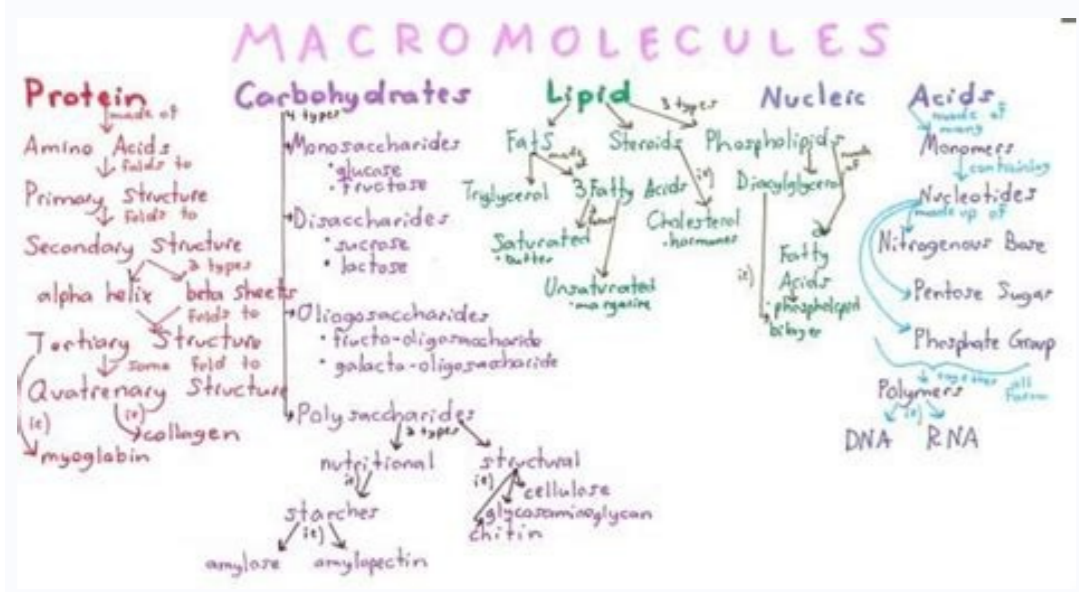 MACROMOLECULES
Protein
made of
Amino Acids
folds to
Primary Structure
folds to
Secondary Structure
2 types
alpha helix
beta sheets
folds to
Tertiary Structure
some fold to
Quatrenary Structure
ie)
collagen
ie)
myoglobin
Carbohydrates
4 types
Monosaccharides
• glucose
• fructose
Disaccharides
• sucrose
• lactose
Oliogosaccharides
• fructo-oligosaccharide
• galacto-oligosaccharide
Polysaccharides
2 types
nutritional
structural
ie)
starches
ie)
amylose
amylopectin
ie)
cellulose
glycosaminoglycan
chitin
Lipid
3 types
Fats
Steroids
Phospholipids
made of
Triglycerol
3 Fatty Acids
Saturated
• butter
Unsaturated
• margarine
ie)
Cholesterol
• hormones
made of
Diacylglycerol
Fatty
Acids
ie)
• phospholipid
bilayer
Nucleic Acids
made of
many
Monomers
containing
Nucleotides
made up of
Nitrogenous Base
Pentose Sugar
Phosphate Group
together all
form
Polymers
ie)
DNA RNA